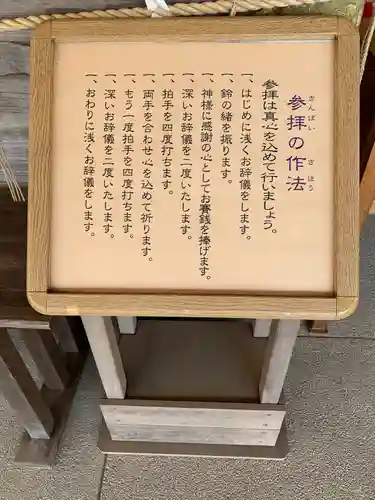 参拝の作法
さんぱい さほう
参拝は真心を込めて行いましょう。
一、はじめに浅くお辞儀をします。
一、鈴の緒を振ります。
一、神様に感謝の心としてお賽銭を捧げます。
一、深いお辞儀を二度いたします。
一、拍手を四度打ちます。
一、両手を合わせ心を込めて祈ります。
一、もう一度拍手を四度打ちます。
一、深いお辞儀を二度いたします。
一、おわりに浅くお辞儀をします。